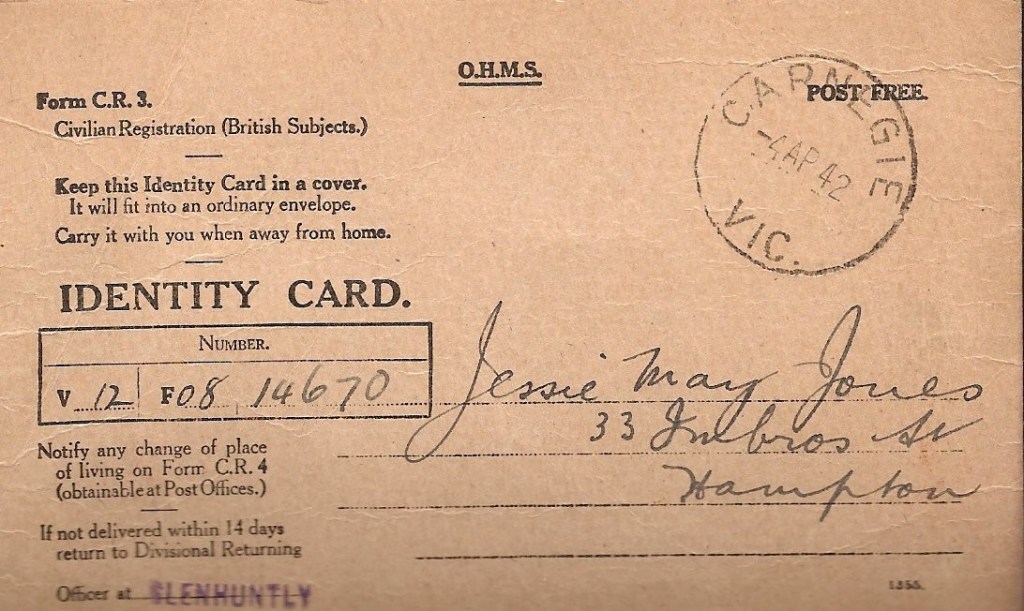 O.H.M.S.
POST FREE.
CARNEGIE
-4AP42
VIC.
Form C.R. 3.
Civilian Registration (British Subjects.)
Keep this Identity Card in a cover.
It will fit into an ordinary envelope.
Carry it with you when away from home.
IDENTITY CARD.
NUMBER.
V 12 F08 14670
Jessie May Jones
33 Imbros St
Hampton
Notify any change of place
of living on Form C.R. 4
(obtainable at Post Offices.)
If not delivered within 14 days
return to Divisional Returning
Officer at GLENHUNTLY
1355.